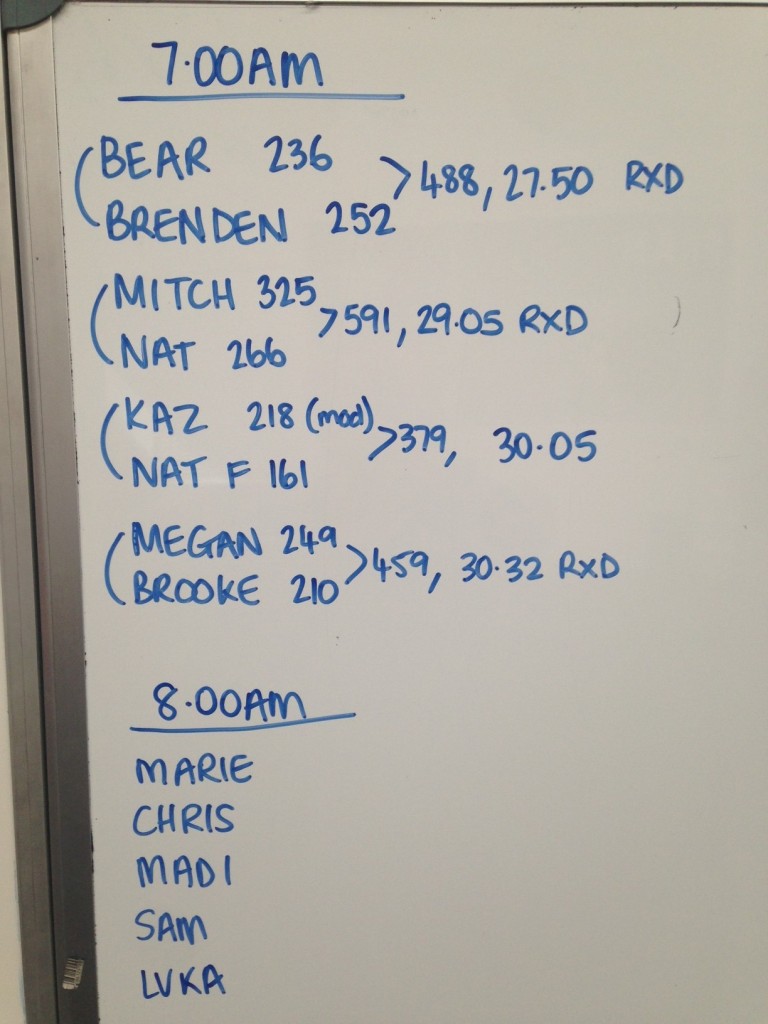 7.00AM
BEAR 236
BRENDEN 252
>488, 27.50 RXD
MITCH 325
NAT 266
>591, 29.05 RXD
KAZ 218 (mod)
NAT F 161
>379, 30.05
MEGAN 249
BROOKE 210
>459, 30.32 RXD
8.00AM
MARIE
CHRIS
MADI
SAM
LUKA